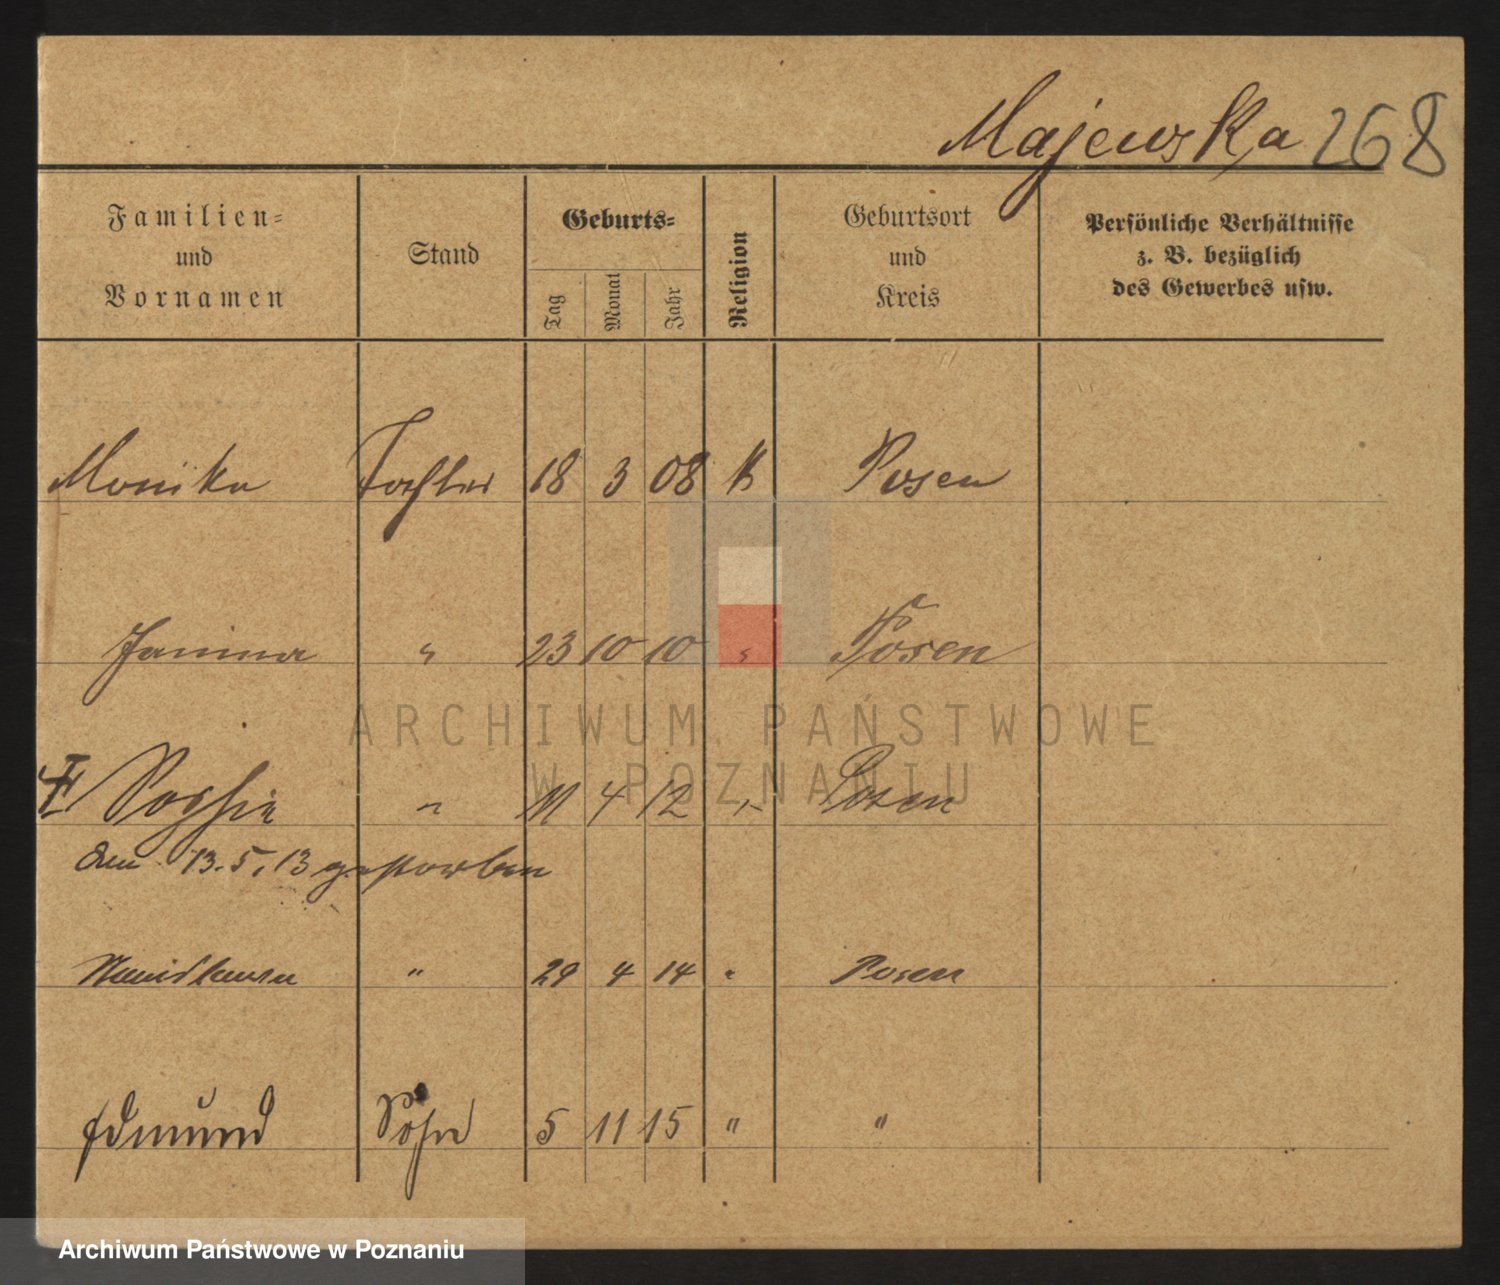 Majewska 268
Familien-
und
Vornamen
Stand
Geburts-
Tag
Monat
Jahr
Religion
Geburtsort
und
Kreis
Persönliche Verhältnisse
z. B. bezüglich
des Gewerbes usw.
Monika Tochter 18 3 08 K Posen
Janina " 23 10 10 " Posen
Sophie " 11 4 12 " Posen
den 13.5.13 gestorben
" 29 4 14 " Posen
Edmund Sohn 5 11 15 " "
ARCHIWUM PAŃSTWOWE
W POZNANIU
Archiwum Państwowe w Poznaniu